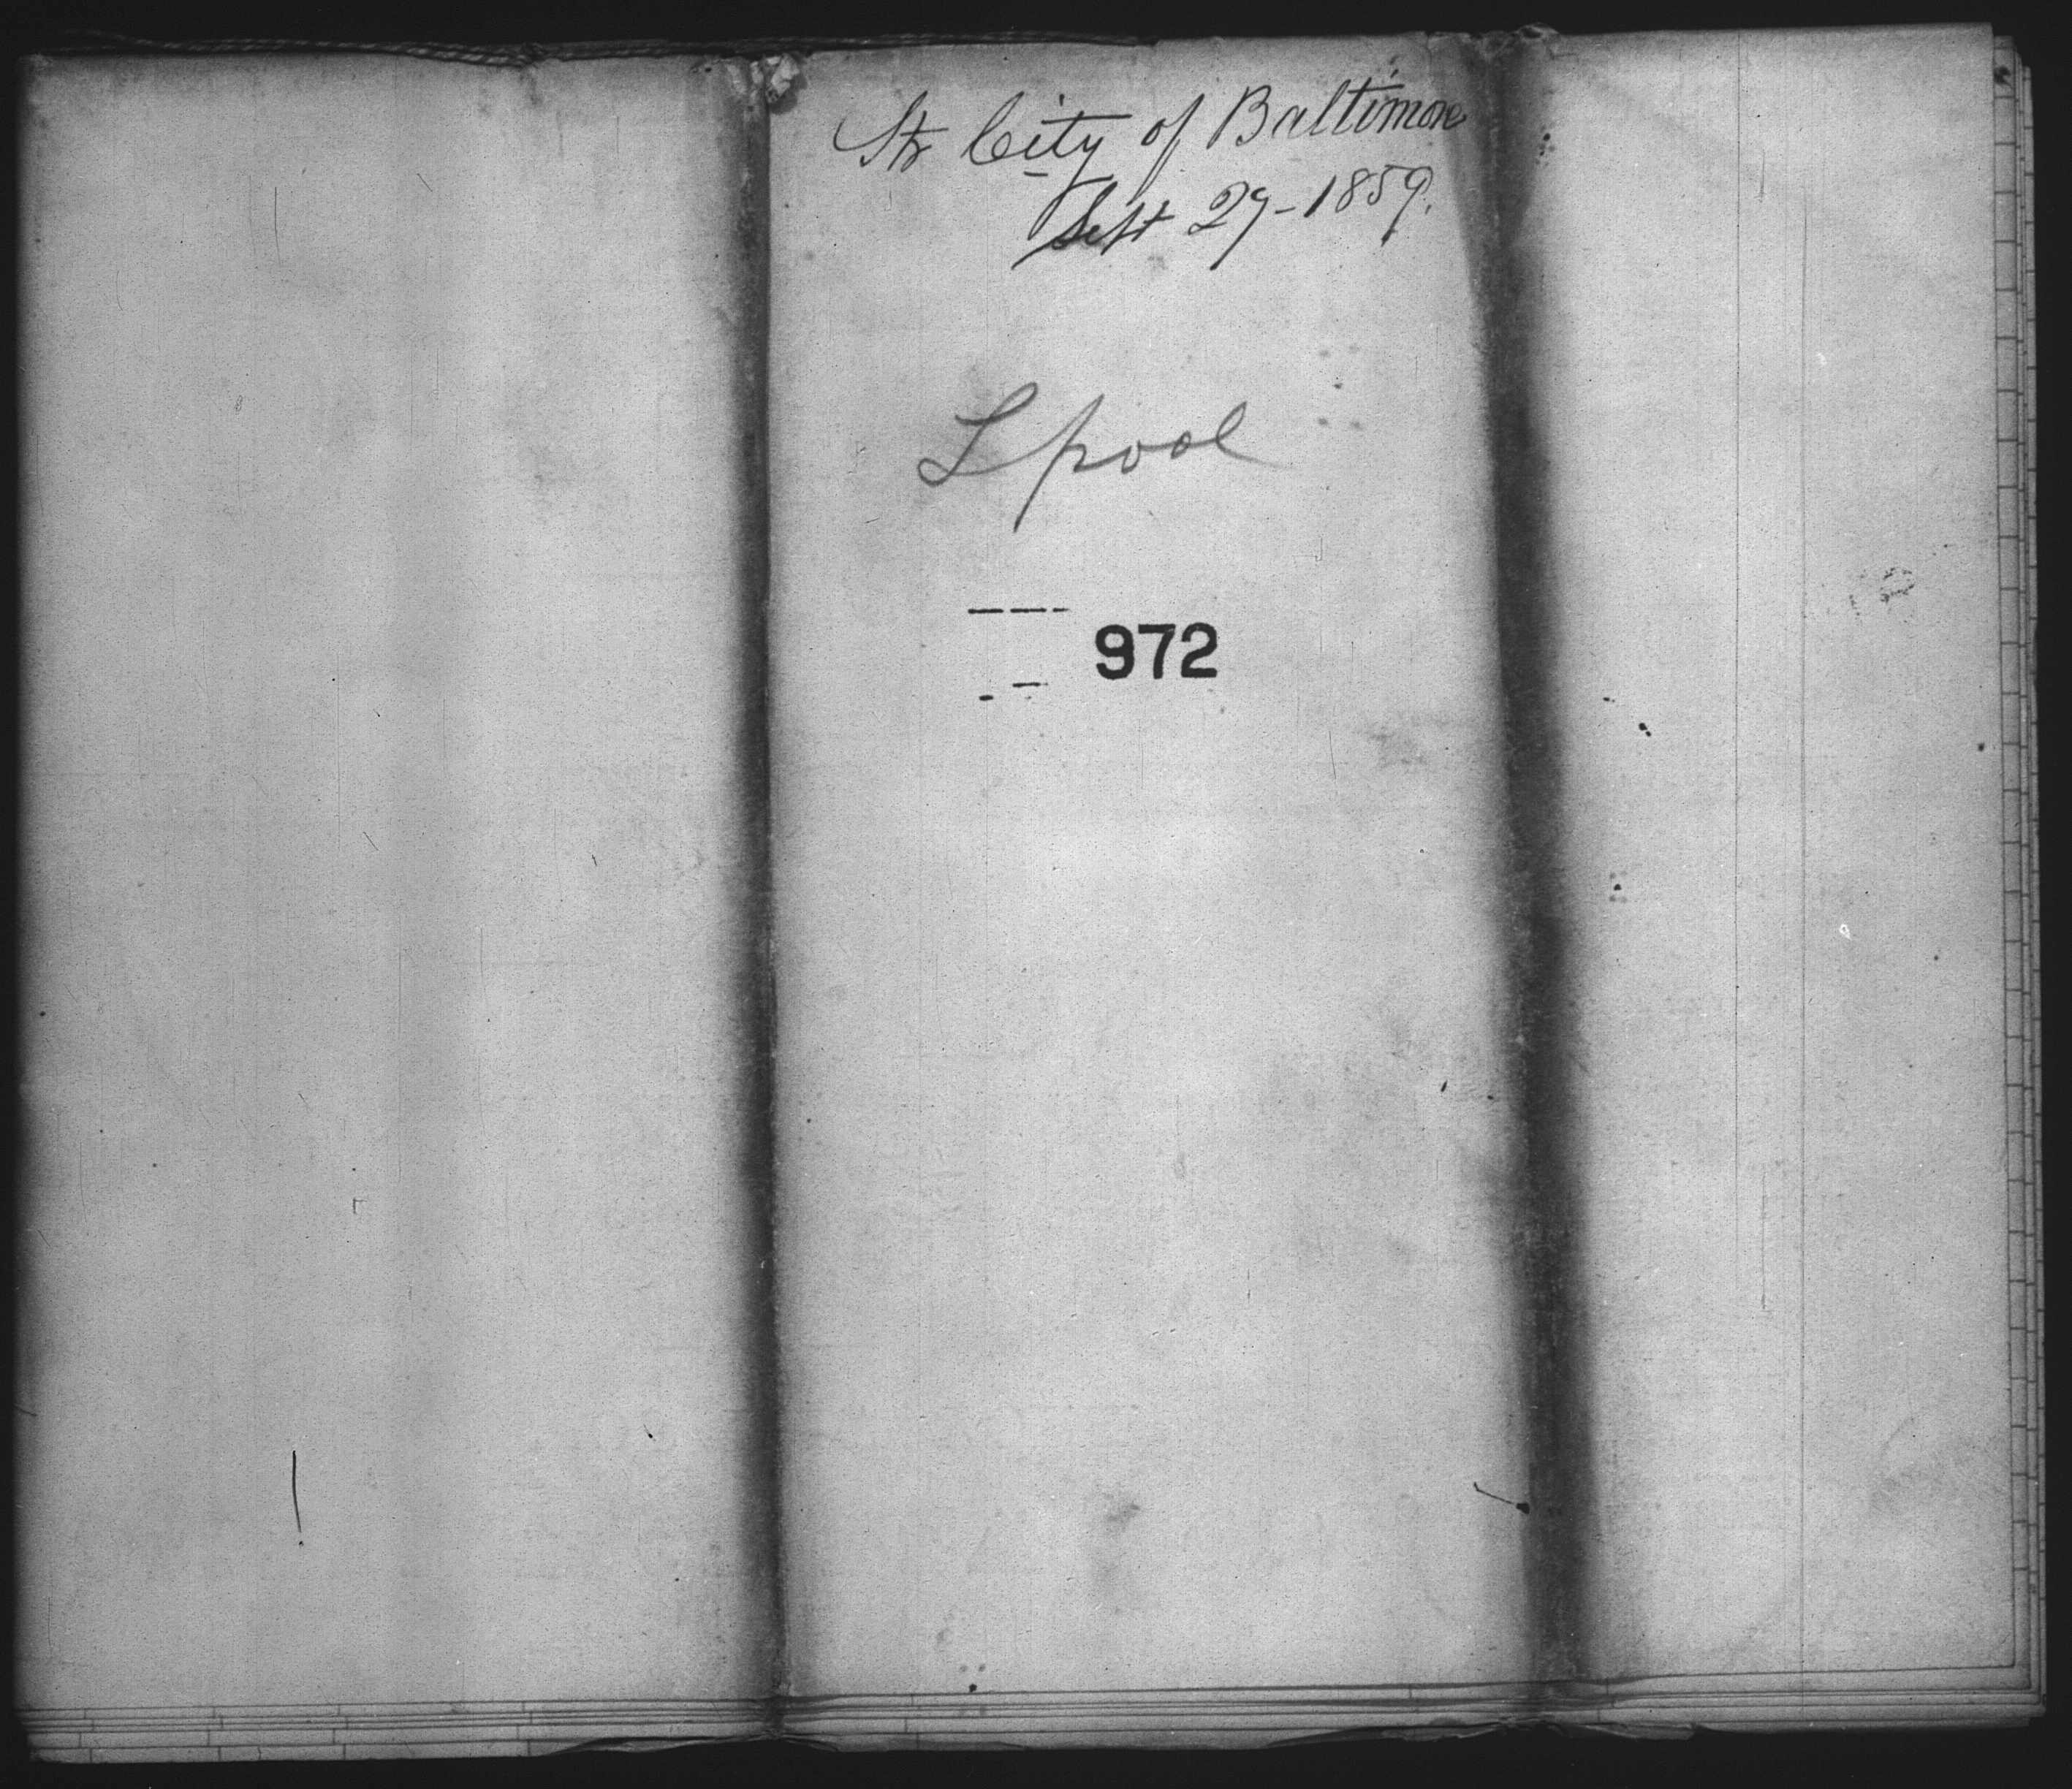 Str City of Baltimore
Sept 29-1859.
L pool
972